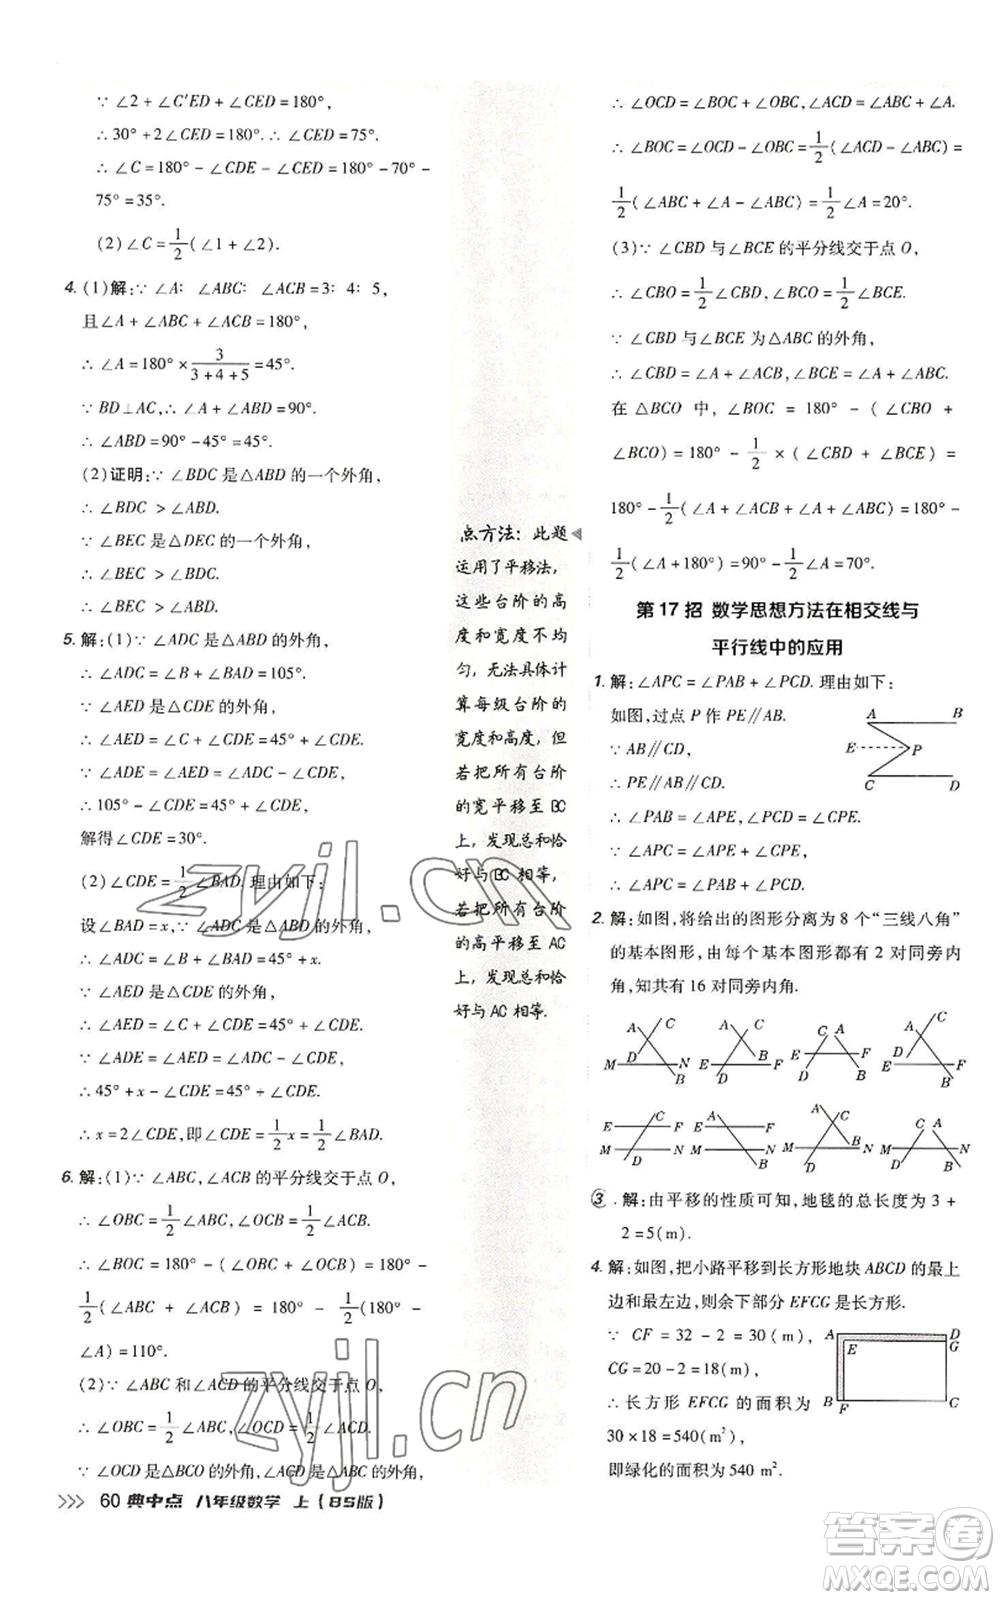 ∵ ∠2 + ∠C′ED + ∠CED = 180°,
∴ 30° + 2∠CED = 180°. ∴ ∠CED = 75°.
∴ ∠C = 180° - ∠CDE - ∠CED = 180° - 70° -
75° = 35°.
(2) ∠C = 1/2(∠1 + ∠2).
4. (1)解:∵ ∠A∶∠ABC∶∠ACB = 3∶4∶5,
且∠A + ∠ABC + ∠ACB = 180°,
∴ ∠A = 180° × 3/(3+4+5) = 45°.
∵ BD⊥AC,∴ ∠A + ∠ABD = 90°.
∴ ∠ABD = 90° - 45° = 45°.
(2)证明:∵ ∠BDC 是△ABD 的一个外角,
∴ ∠BDC > ∠ABD.
∵ ∠BEC 是△DEC 的一个外角,
∴ ∠BEC > ∠BDC.
∴ ∠BEC > ∠ABD.
5. 解:(1)∵ ∠ADC 是△ABD 的外角,
∴ ∠ADC = ∠B + ∠BAD = 105°.
∵ ∠AED 是△CDE 的外角,
∴ ∠AED = ∠C + ∠CDE = 45° + ∠CDE.
∵ ∠ADE = ∠AED = 45° + ∠CDE,
∴ 105° - ∠CDE = 45° + ∠CDE,
解得∠CDE = 30°.
(2) ∠CDE = 1/2∠BAD. 理由如下:
设∠BAD = x,∵ ∠ADC 是△ABD 的外角,
∴ ∠ADC = ∠B + ∠BAD = 45° + x.
∵ ∠AED 是△CDE 的外角,
∴ ∠AED = ∠C + ∠CDE = 45° + ∠CDE.
∵ ∠ADE = ∠AED = 45° + ∠CDE,
∴ 45° + x - ∠CDE = 45° + ∠CDE,
∴ x = 2∠CDE,即∠CDE = 1/2x = 1/2∠BAD.
6. 解:(1)∵ ∠ABC,∠ACB 的平分线交于点 O,
∴ ∠OBC = 1/2∠ABC,∠OCB = 1/2∠ACB.
∴ ∠BOC = 180° - (∠OBC + ∠OCB) = 180° -
1/2(∠ABC + ∠ACB) = 180° - 1/2(180° -
∠A) = 110°.
(2)∵ ∠ABC 和∠ACD 的平分线交于点 O,
∴ ∠OBC = 1/2∠ABC,∠OCD = 1/2∠ACD.
∵ ∠OCD 是△BCO 的外角,∠ACD 是△ABC 的外角,
>>> 60 典中点 八年级数学 上(BS版)
点方法:此题
运用了平移法,
这些台阶的高
度和宽度不均
匀,无法具体计
算每级台阶的
宽度和高度,但
若把所有台阶
的宽平移至 BC
上,发现总和恰
好与 BC 相等,
若把所有台阶
的高平移至 AC
上,发现总和恰
好与 AC 相等.
∴ ∠OCD = ∠BOC + ∠OBC,∠ACD = ∠ABC + ∠A.
∴ ∠BOC = ∠OCD - ∠OBC = 1/2(∠ACD - ∠ABC) =
1/2(∠ABC + ∠A - ∠ABC) = 1/2∠A = 20°.
(3)∵ ∠CBD 与∠BCE 的平分线交于点 O,
∴ ∠CBO = 1/2∠CBD,∠BCO = 1/2∠BCE.
∵ ∠CBD 与∠BCE 为△ABC 的外角,
∴ ∠CBD = ∠A + ∠ACB,∠BCE = ∠A + ∠ABC.
在 △BCO 中,∠BOC = 180° - (∠CBO +
∠BCO) = 180° - 1/2 × (∠CBD + ∠BCE) =
180° - 1/2(∠A + ∠ACB + ∠A + ∠ABC) = 180° -
1/2(∠A + 180°) = 90° - 1/2∠A = 70°.
第 17 招 数学思想方法在相交线与
平行线中的应用
1. 解:∠APC = ∠PAB + ∠PCD. 理由如下:
如图,过点 P 作 PE∥AB.
∵ AB∥CD,
∴ PE∥AB∥CD.
∴ ∠PAB = ∠APE,∠PCD = ∠CPE.
∵ ∠APC = ∠APE + ∠CPE,
∴ ∠APC = ∠PAB + ∠PCD.
A B
E P
C D
2. 解:如图,将给出的图形分离为 8 个“三线八角”
的基本图形,由每个基本图形都有 2 对同旁内
角,知共有 16 对同旁内角.
A C M D N B
A C E D B F
C A E D B F
A C E D B F
C E F M N D
A E F M N B
A C M D B N
C A M D B N
3. 解:由平移的性质可知,地毯的总长度为 3 +
2 = 5(m).
4. 解:如图,把小路平移到长方形地块 ABCD 的最上
边和最左边,则余下部分 EFCG 是长方形.
∵ CF = 32 - 2 = 30(m),
CG = 20 - 2 = 18(m),
∴ 长方形 EFCG 的面积为
30 × 18 = 540(m²),
即绿化的面积为 540 m².
A D
E G
B F C
zyjl.cn
zyjl.cn
答案卷
MXQE.COM